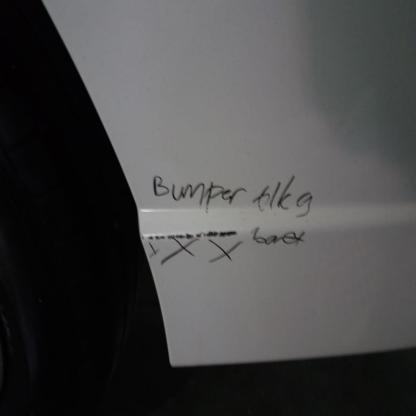 Bumper tlkg
XX back